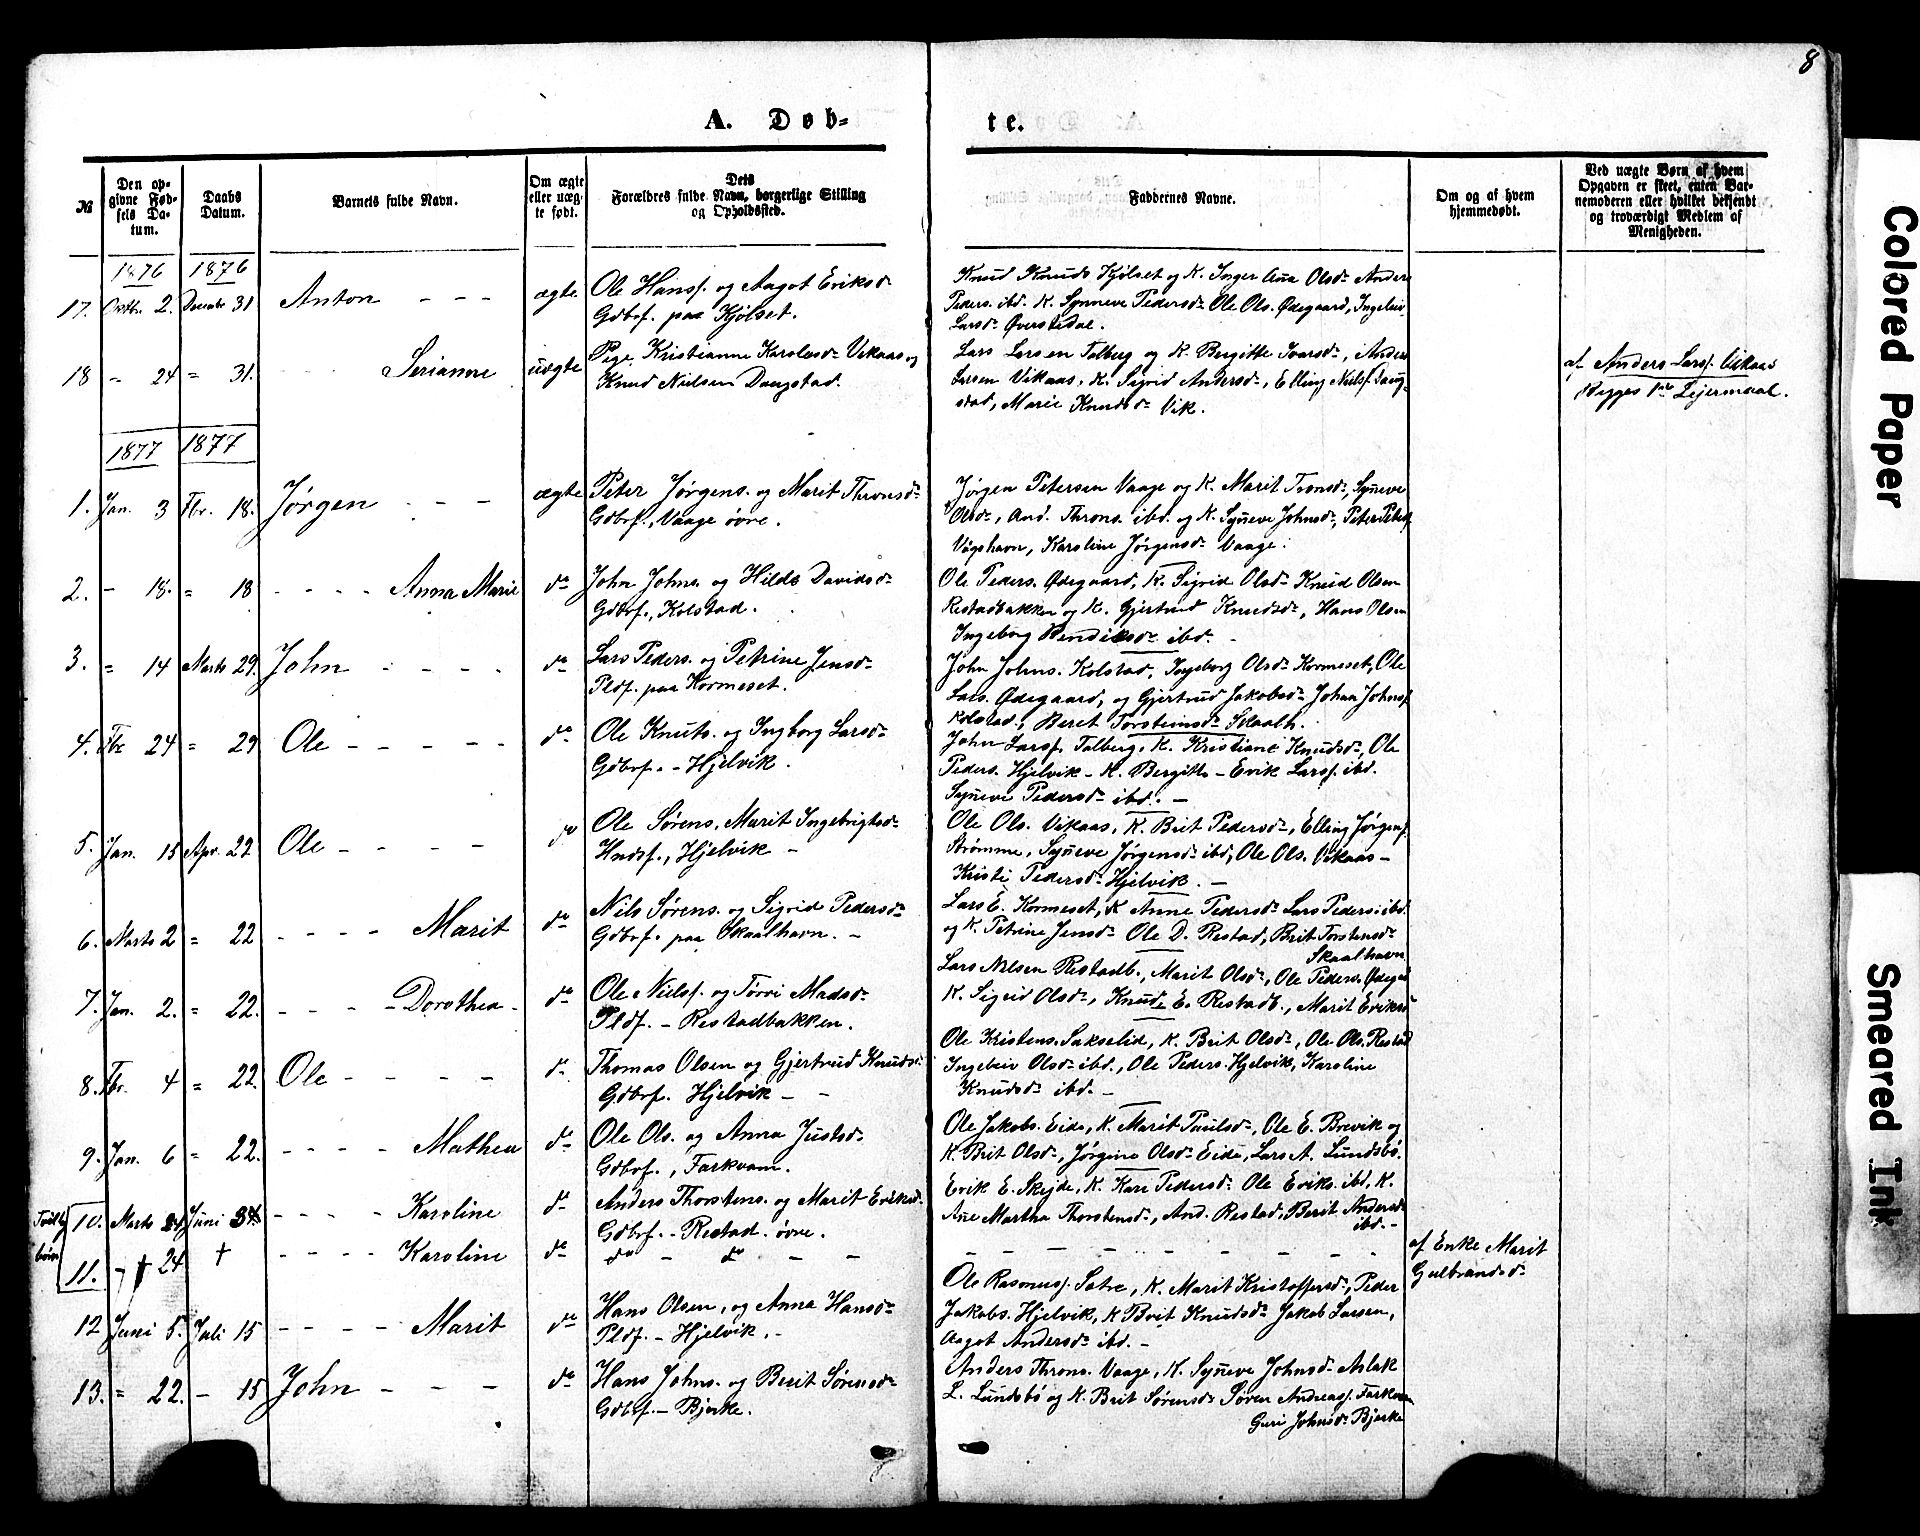 8
A. Døb-
te.
№
Den op-
givne Fød-
sels Da-
tum.
Daabs
Datum.
Barnets fulde Navn.
Om ægte
eller uæg-
te født.
Dets
Forældres fulde Navn, borgerlige Stilling
og Opholdssted.
Faddernes Navne.
Om og af hvem
hjemmedøbt.
Ved uægte Børn af hvem
Opgaven er skeet, enten Bar-
nemoderen eller hvilket bekjendt
og troværdigt Medlem af
Menigheden.
1876 1876
17. Oktbr. 2. Decebr 31 Anton - - - ægte Ole Hansf. og Aagot Eriksd
Gdbrf. paa Kjølset.
Knud Knuds Kjølset og K. Inger Ana Olsd. Anders
Peders. ibd. K. Synneve Pedersd. Ole Ols. Ødegaard, Ingeleiv
Larsd. Øverstedal.
18 " 24 = 31. Serianne uægte Pige Kristianne Karolusd. Vikaas og
Knud Nielsen Daugstad.
Lars Larsen Talberg og K. Bergitte Ivarsd., Anders
Larsen Vikaas, K. Sigrid Andersd., Elling Nielsf. Daug-
stad, Marie Knudsd. Vik.
af Anders Larsf. Vikaas
Begges 1ste Lejermaal.
1877 1877
1. Jan. 3 Fbr. 18. Jørgen - - - ægte Peter Jørgens. og Marit Thronsd.
Gdbrf., Vaage øvre.
Jørgen Petersen Vaage og K. Marit Tronsd., Syneve
Olsd., And. Throns. ibd. og K. Syneve Johnsd., Peter Petersf.
Vågshavn, Karoline Jørgensd. Vaage.
2. - 18. = 18 - - - - Anna Marie do John Johns. og Hilde Davidsd.
Gdbrf., Kolstad.
Ole Peders. Ødegaard, K. Sigrid Olsd. Knud Olsen
Restadbakken og K. Gjertrud Knudsd., Hans Olsen
Ingeborg Bendiksd. ibd. -
3. = 14 Marts 29. John - - - - do Lars Peders. og Petrine Jensd.
Pldf. paa Kormeset.
John Johns. Kolstad, Ingeborg Olsd. Kormeset, Ole
Lars. Ødegaard, og Gjertrud Jakobsd. Johan Johnsf.
Kolstad, Beret Torsteinsd. Skaalh.
4. Fbr 24 = 29 Ole - - - - - do Ole Knuts. og Ingborg Larsd.
Gdbrf. - Hjelvik.
John Larsf. Talberg, K. Kristiane Knudsd., Ole
Peders. Hjelvik - K. Bergitte - Erik Larsf. ibd.
Syneve Pedersd. ibd. -
5. Jan. 15 Apr. 22 Ole - - - - do Ole Sørens. Marit Ingebrigtsd.
Hndsf., Hjelvik -
Ole Ols. Vikaas, K. Brit Pedersd., Elling Jørgensf.
Strømme, Syneve Jørgensd. ibd, Ole Ols. Vikaas -
Kristi Pedersd. Hjelvik. -
6. Marts 2 = 22 - - - - Marit do Nils Sørens. og Sigrid Pedersd.
Gdbrf. paa Skaalhavn. -
Lars E. Kormeset, K Anne Pedersd. Lars Peders. ibd.
og K. Petrine Jensd. Ole D. Restad, Brit Torstensd.
Skaalhavn
7. Jan. 2. = 22. - - - - Dorothea - do Ole Nielsf. og Torvi Madsd.
Pldf. - Restadbakken.
Lars Nilsen Restadb., Marit Olsd., Ole Peders. Ødegd
K. Sigrid Olsd., Knud E. Restadb., Marit Eriksd
8. Fbr. 4 = 22. Ole - - - - do Thomas Olsen og Gjertrud Knudsd.
Gdbrf. Hjelvik - -
Ole Kristens. Sakselid, K. Brit Olsd., Ole Ols. Restad
Ingeleiv Olsd. ibd., Ole Peders. Hjelvik, Karoline
Knudsd. ibd. -
9. Jan. 6 = 22. - - - - Mathea do Ole Ols. og Anna Justsd.
Gdbrf., Farkvam.
Ole Jakobs. Eide, K. Marit Paulsd., Ole E. Brevik og
K. Brit Olsd., Jørgine Olsd. Eide, Lars A. Lundsbø.
Tvillg
børn
10. Marts 24 Juni 24 - - - - Karoline do Anders Thorstens. og Marit Eriksd.
Gdbrf. - Restad øvre.
Erik E. Skejde, K. Kari Pedersd. Ole Eriks. ibd, K.
Ane Martha Thorstensd., And. Restad, Berit Andersd
ibd. -
11. - † 24 † - - - - Karoline do do - do - -
- - - - - - - - -
af Enke Marit
Gulbrandsd.
12 Juni 5. Juli 15 - - - - Marit do Hans Olsen, og Anna Hansd.
Pldf. - Hjelvik. -
Ole Rasmusf. Satre, K. Marit Kristoffersd., Peder
Jakobs. Hjelvik, K Brit Knudsd. Jakob Larsen,
Aagot Andersd. ibd. -
13. = 22. - 15 John - - - do Hans Johns. og Berit Sørensd.
Gdbrf. - Bjerke.
Anders Throns. Vaage, K. Syneve Johnsd. Aslak
L. Lundsbø og K. Brit Sørensd. Søren Andreasf. Farkvam
Guri Johnsd. Bjerke
Colored Paper
Smeared Ink